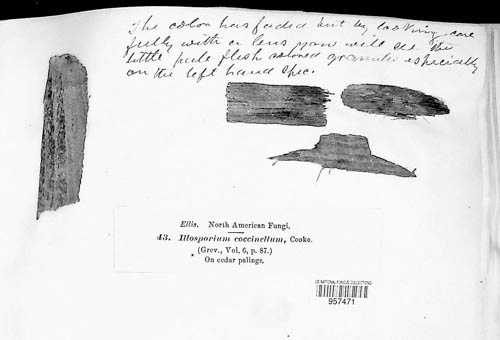 The color has faded out by looking care
fully with a lens you will see the
little pale flesh colored granules especially
on the left hand spec.
Ellis. North American Fungi.
43. Illosporium coccinellum, Cooke.
(Grev., Vol. 6, p. 87.)
On cedar palings.
US NATIONAL FUNGUS COLLECTIONS
957471